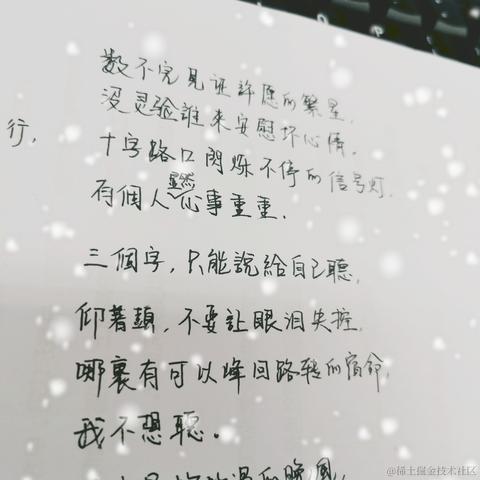 数不完见证許愿的繁星,
没灵验誰来安慰坏心情.
行,
十字路口閃烁不停的信号灯.
有個人显然心事重重.
三個字,只能説給自己聽.
仰著頭,不要让眼泪失控.
哪裏有可以峰回路转的宿命,
我不想聽。
的晚風,
@稀土掘金技术社区